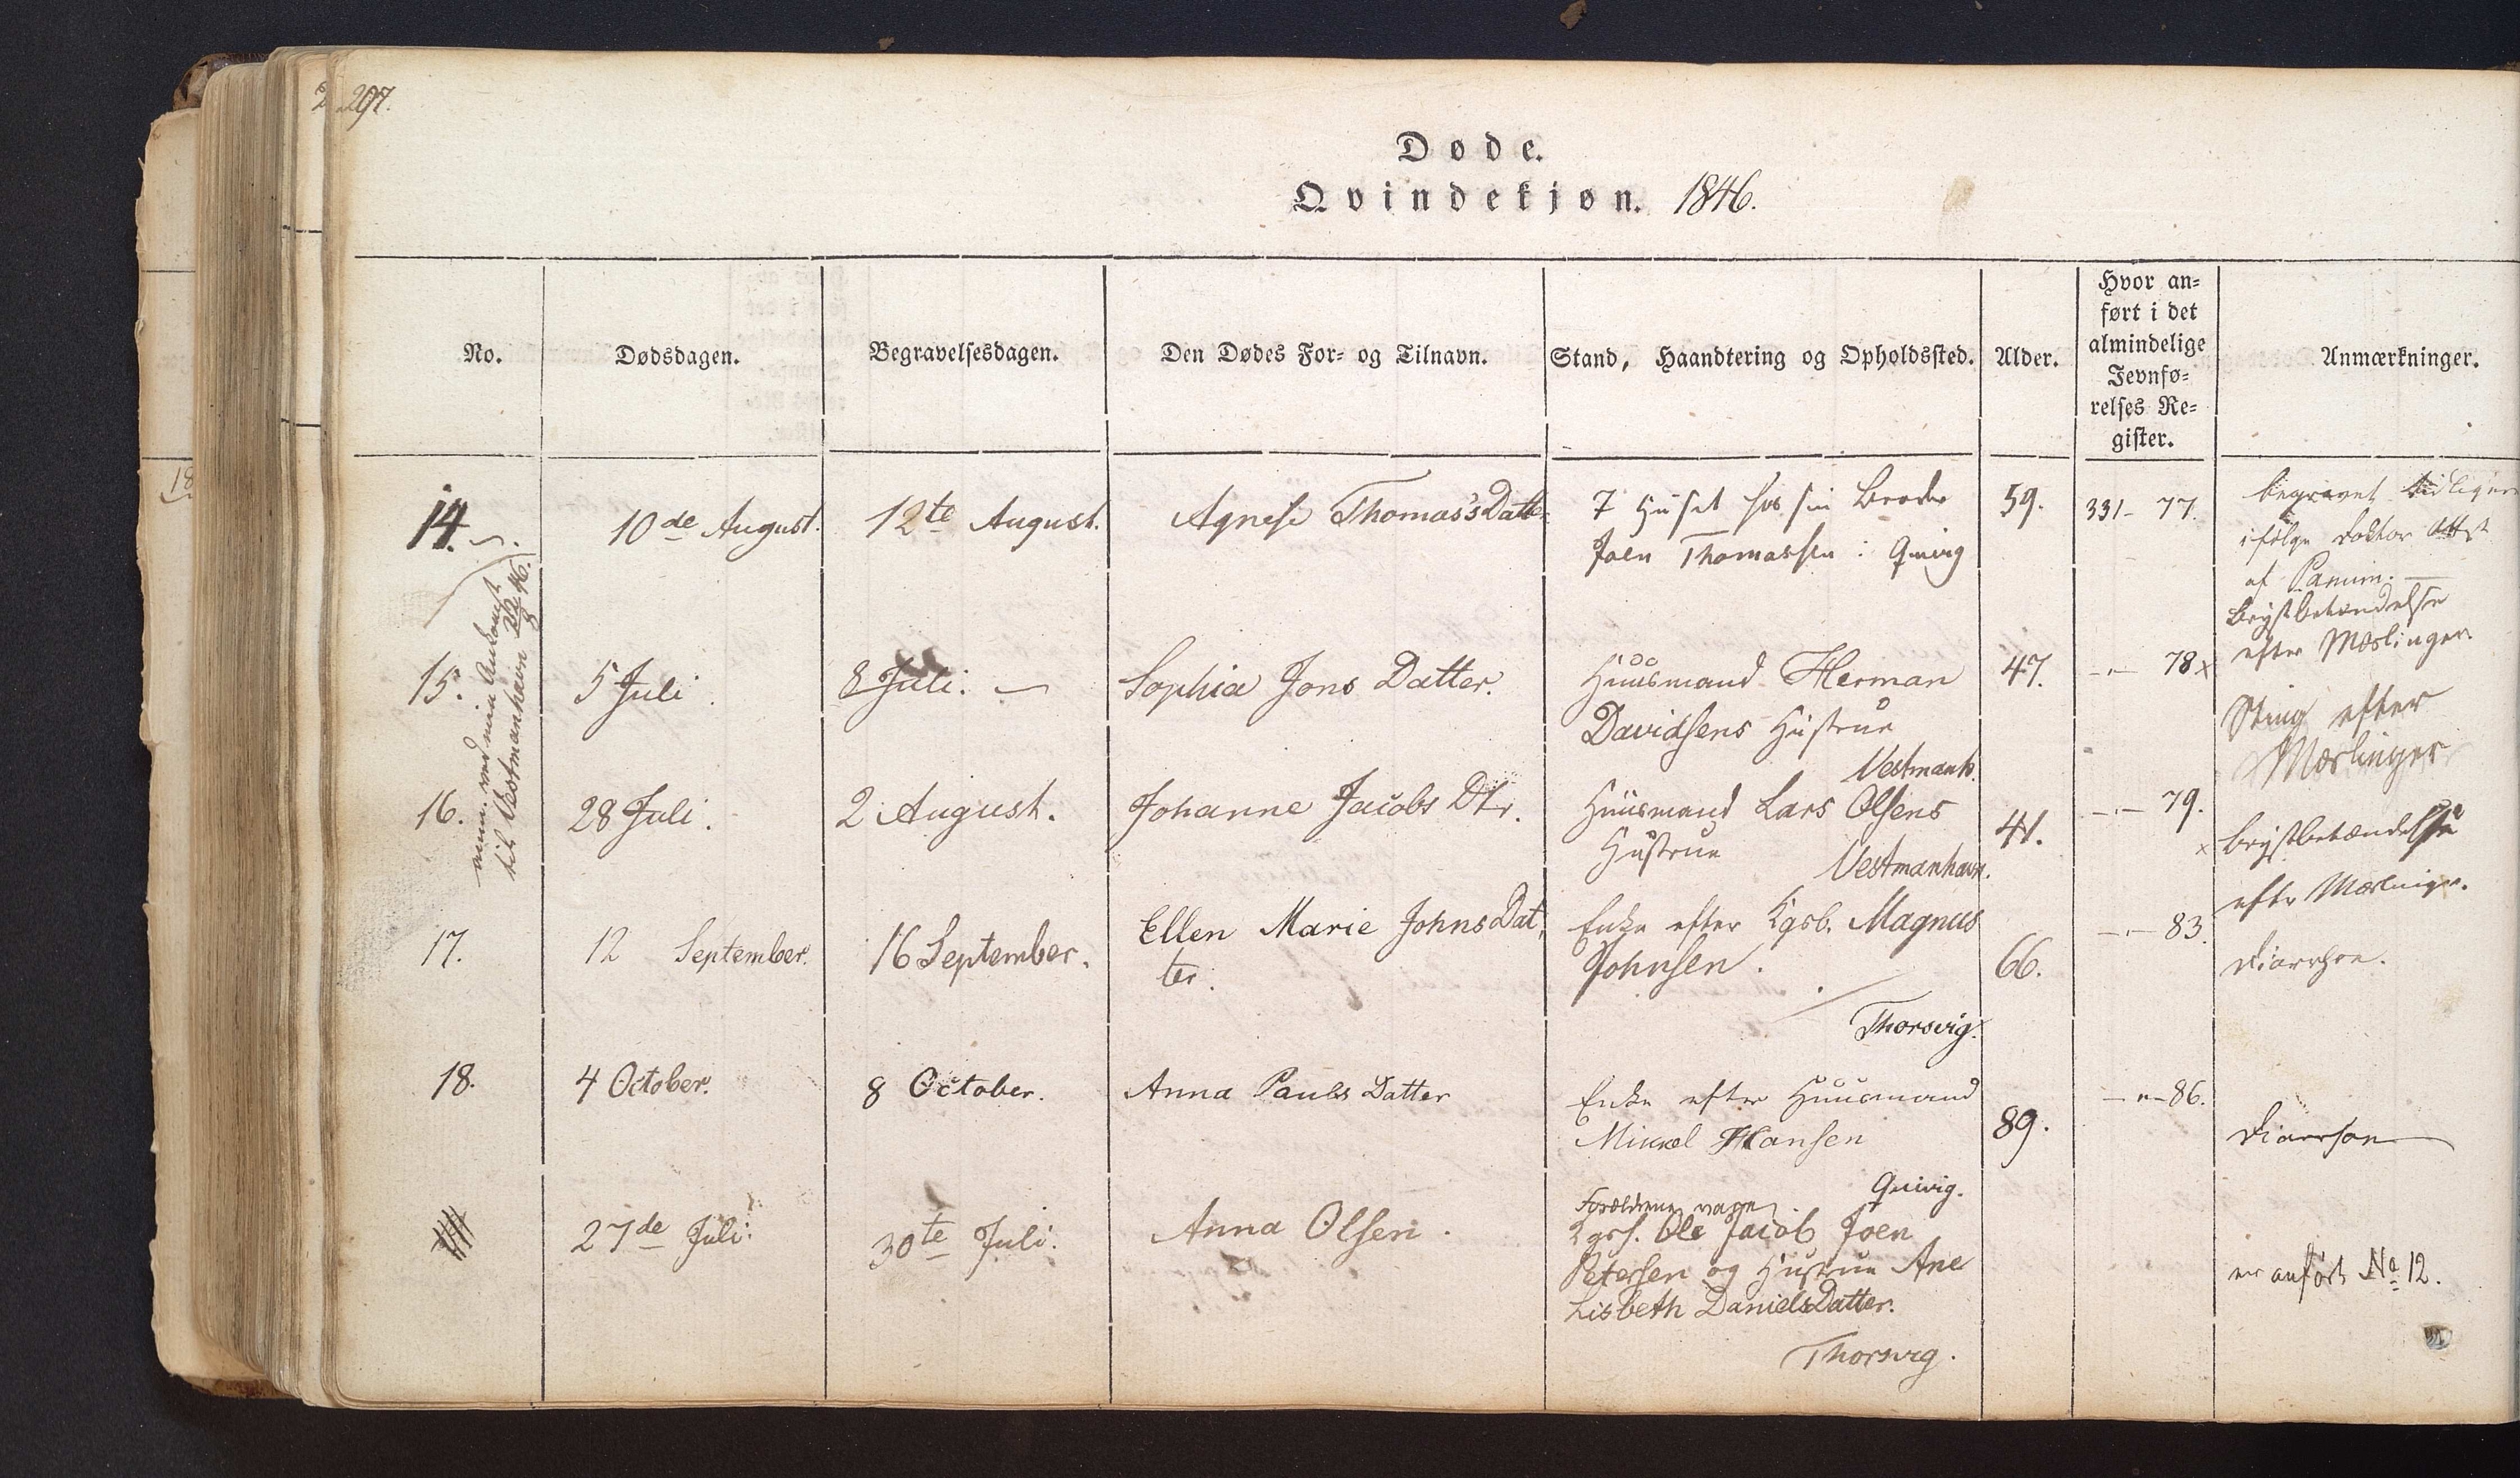 297.
Døde.
Qvindekjøn. 1846.
No.
Dødsdagen.
Begravelsesdagen.
Den Dødes For- og Tilnavn.
Stand, Haandtering og Opholdssted.
Alder.
Hvor an-
ført i det
almindelige
Jevnfø-
relses Re-
gister.
Anmærkninger.
14.
10de August.
12te August.
Agnese Thomas'sDatter
I Huset hos sin Broder
Joen Thomassen i Qvivig
59.
331- 77.
begravet tidligere
ifølge Doktor Attest
af Panum.
min Ankomst
til Vestmanhavn
15.
5 Juli.
8 Juli.
Sophia Jons Datter.
Huusmand Herman
Davidsens Hustrue
Vestmanh.
47.
-"- 78 x
Brystbetændelse
efter Mæslinger.
Sting efter
Mæslinger
16.
28 Juli.
2 August.
Johanne Jacobs Dtr.
Huusmand Lars Olsens
Hustrue
Vestmanhavn.
41.
-"- 79.
x
Brystbetændelse
efter Mæslinger.
17.
12 September.
16 September.
Ellen Marie JohnsDat,
ter.
Enke efter Kgsb. Magnus
Johnsen.
Thorsvig.
66.
-"- 83.
Diarrhoe.
18.
4 October.
8 October.
Anna Pauls Datter
Enke efter Huusmand
Mikkel Hansen
Qvivig.
89.
-"- 86.
Diarrhoe
27de Juli.
30te Juli.
Anna Olsen.
Forældrene vare
Ole Jacob Joen
Petersen og Hustrue Ane
Lisbeth DanielsDatter.
Thorsvig.
er anført No 12.